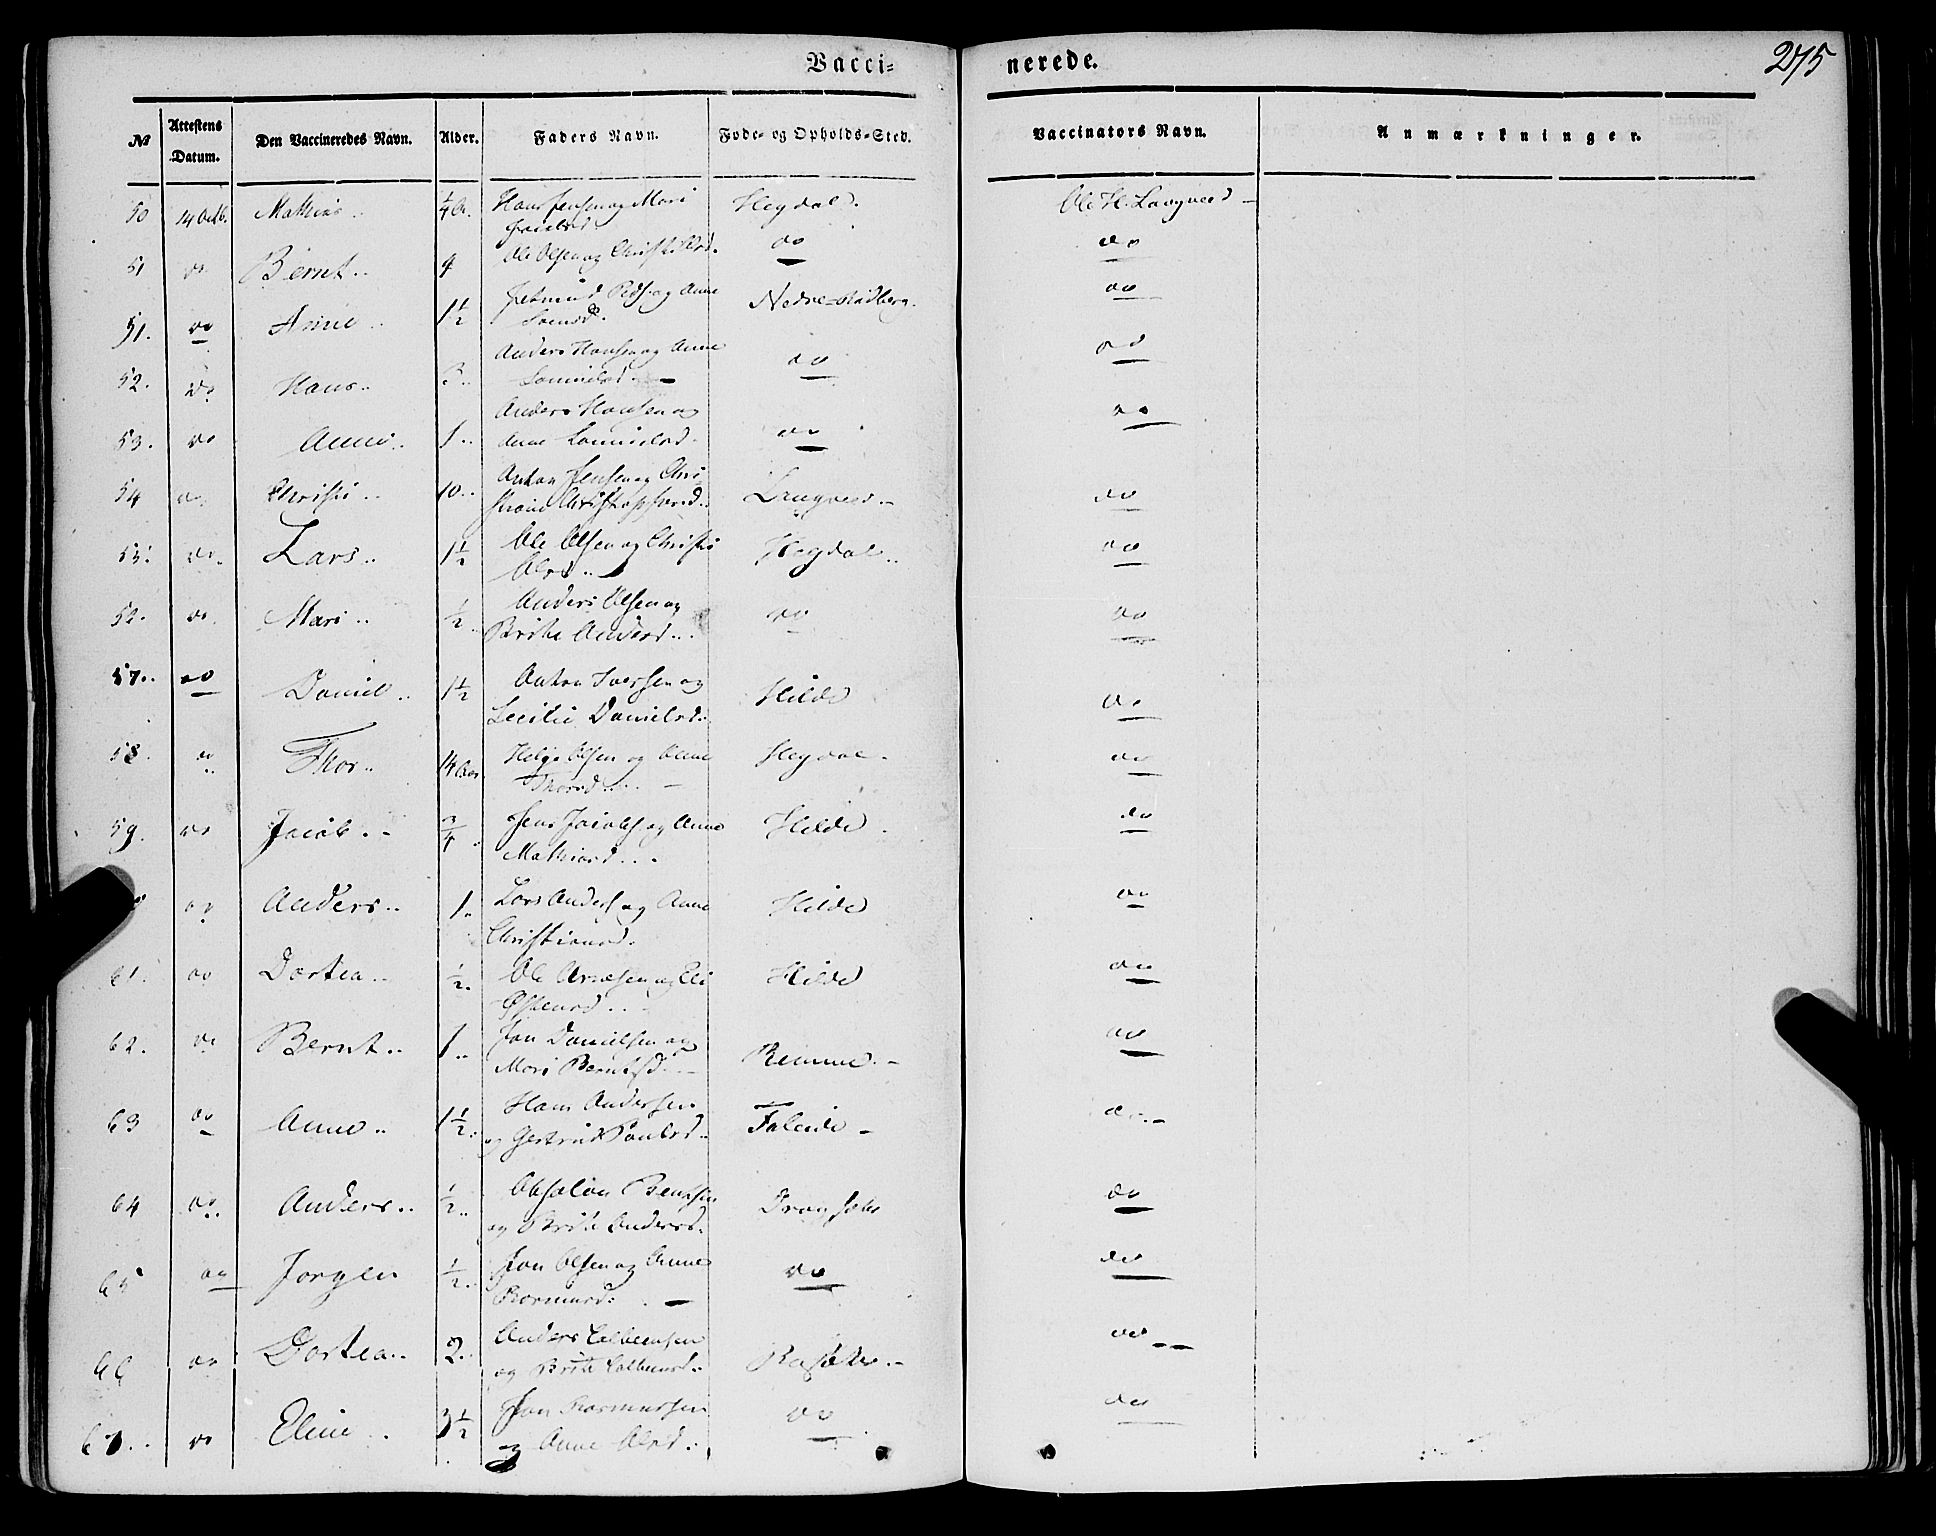 Vacci=
nerede.
275
№ | Attestens Datum. | Den Vaccineredes Navn. | Alder. | Faders Navn. | Føde- og Opholds-Sted. | Vaccinators Navn. | Anmærkninger.
50 | 14 Octb. | Mathias .. | 1/4 | Hans Jensen og Mari | Hegdal. | Ole H. Langved
51 | do | Bernt .. | 4 | Ole Olsen og Christi Olsd. | do | do
51. | do | Anne .. | 1 1/2 | Peds. og Anne | Nedre- | do
52. | do | Hans .. | 3 .. | Anders Hansen og Anne | do | do
53. | do | Anne. | 1 .. | Anders Hansen og
Anne | do | do
54 | do | Christi .. | 10 .. | Anton Jensen og Chri-
| Langved | do
55. | do | Lars .. | 1 1/2 | Ole Olsen og Christi
Olsd .. | Hegdal .. | do
52. | do. | Mari .. | 1/2 | Anders Olsen og
Brithe Andersd .. | do | do
57 .. | do | Daniel .. | 1 1/2 | Anton Iversen og
Cecilie Danielsd. | Hilde | do
58. | do | Thor .. | 14 | Helge Olsen og Anne
Thorsd .. | Hegdal. | do
59. | do | Jacob . - | 3/4 | Jens Jacobs. og Anne
Mathiasd .. | Hilde. | do
do | Anders .. | 1. | Lars Anders. og Anne
Christiansd. | Hilde | do
61. | do | Dortea .. | 1/2. | Ole Arnesen og Eli
Østensd .. | Hilde | do
62. | do | Bernt .. | 1 .. | Jon Danielsen og
Mari Berntsd. - | Remme. - | do
63 | do | Anne .. | 1 1/2. | Hans Andersen
og Gertrud Paulsd .. | Faleide - | do. -
64 | do | Anders .. | 1/2 .. | Absalon Bentsen
og Brite Andersd. | | do
65 | do | Jorgen | 1/2. | Jon Olsen og Anne
Rasmusd: | do | do
66 | do | Dortea .. | 2. | Anders
og Brite | | do
67 .. | do | Eline .. | 3 1/2 | Jon Rasmussen
og Anne Olsd .. | do | do